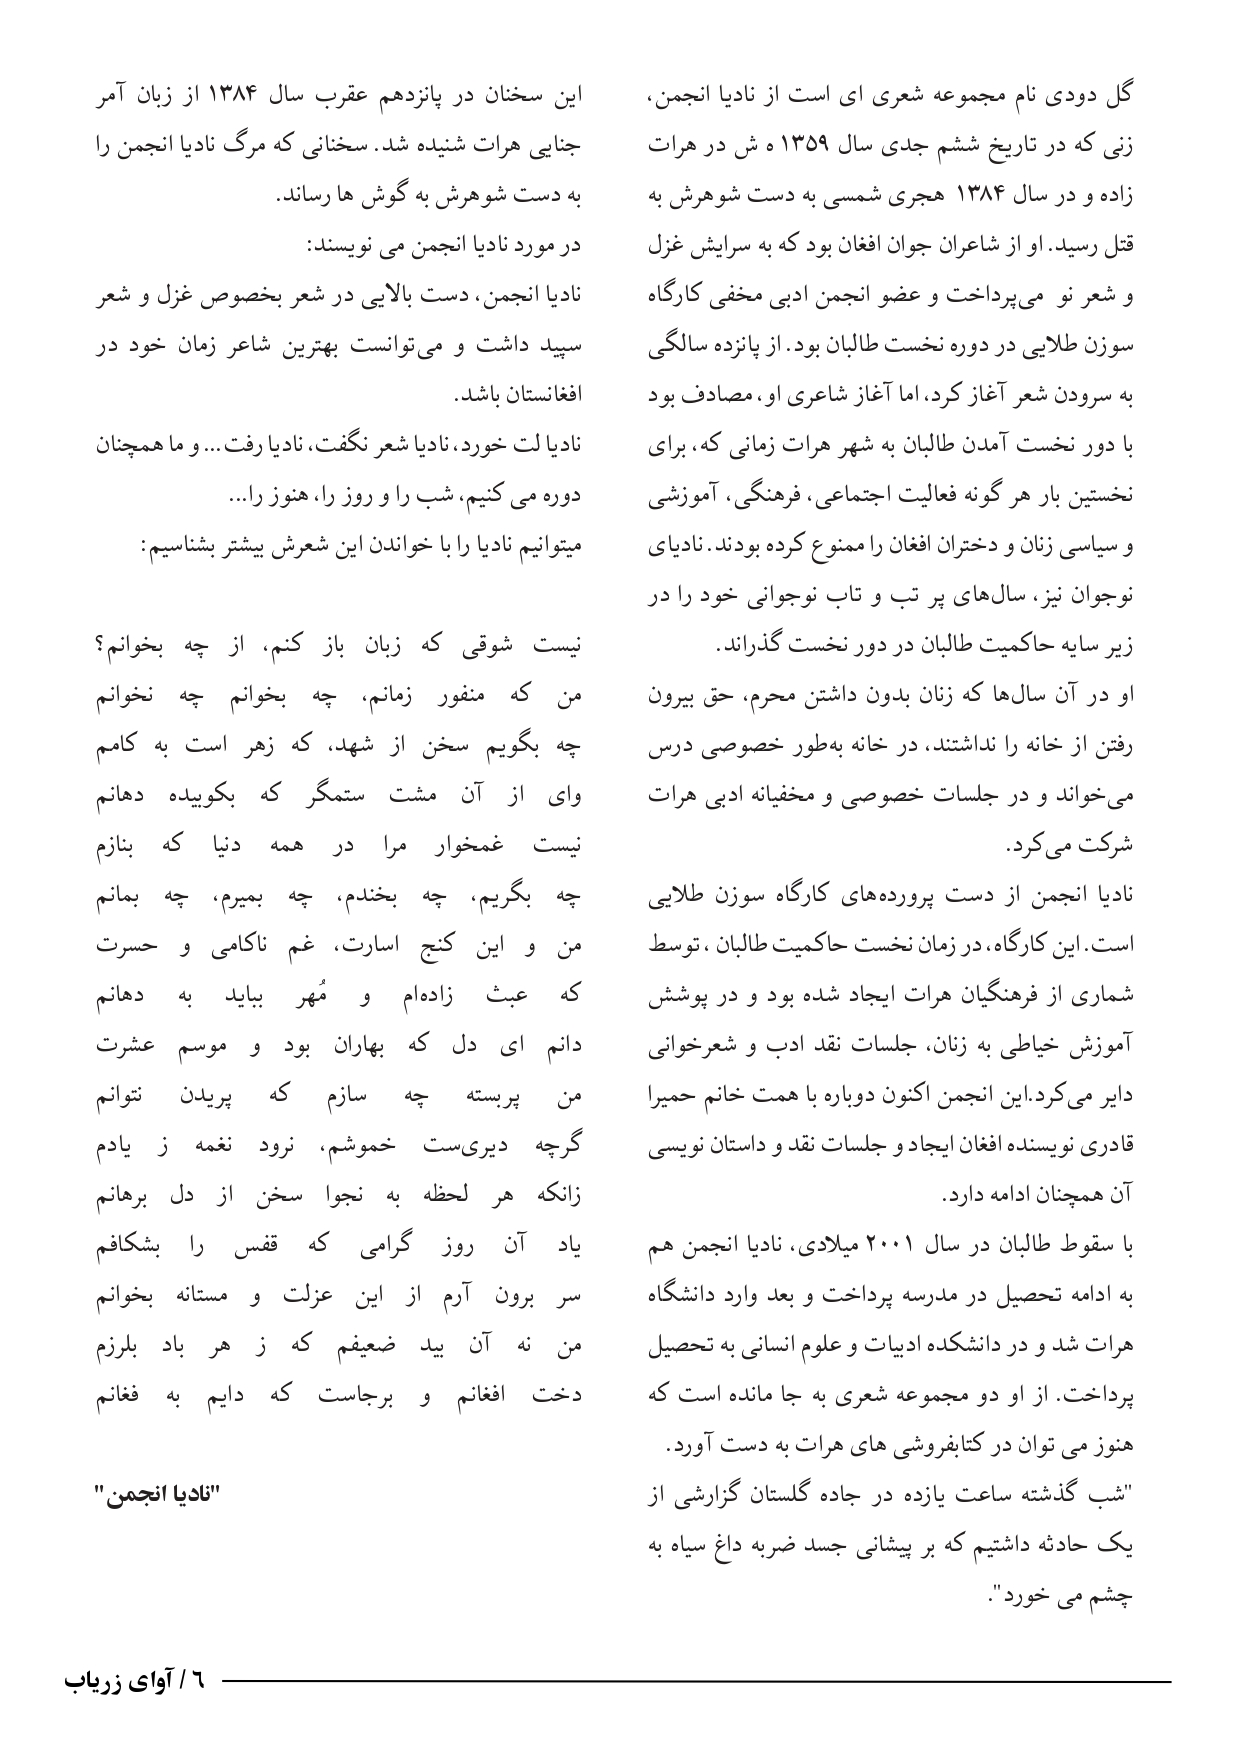 گل دودی نام مجموعه شعری ای است از نادیا انجمن،
زنی که در تاریخ ششم جدی سال ۱۳۵۹ ه ش در هرات
زاده و در سال ۱۳۸۴ هجری شمسی به دست شوهرش به
قتل رسید. او از شاعران جوان افغان بود که به سرایش غزل
و شعر نو می‌پرداخت و عضو انجمن ادبی مخفی کارگاه
سوزن طلایی در دوره نخست طالبان بود. از پانزده سالگی
به سرودن شعر آغاز کرد، اما آغاز شاعری او، مصادف بود
با دور نخست آمدن طالبان به شهر هرات زمانی که، برای
نخستین بار هر گونه فعالیت اجتماعی، فرهنگی، آموزشی
و سیاسی زنان و دختران افغان را ممنوع کرده بودند. نادیای
نوجوان نیز، سال‌های پر تب و تاب نوجوانی خود را در
زیر سایه حاکمیت طالبان در دور نخست گذراند.
او در آن سال‌ها که زنان بدون داشتن محرم، حق بیرون
رفتن از خانه را نداشتند، در خانه به‌طور خصوصی درس
می‌خواند و در جلسات خصوصی و مخفیانه ادبی هرات
شرکت می‌کرد.
نادیا انجمن از دست پرورده‌های کارگاه سوزن طلایی
است. این کارگاه، در زمان نخست حاکمیت طالبان ، توسط
شماری از فرهنگیان هرات ایجاد شده بود و در پوشش
آموزش خیاطی به زنان، جلسات نقد ادب و شعرخوانی
دایر می‌کرد.این انجمن اکنون دوباره با همت خانم حمیرا
قادری نویسنده افغان ایجاد و جلسات نقد و داستان نویسی
آن همچنان ادامه دارد.
با سقوط طالبان در سال ۲۰۰۱ میلادی، نادیا انجمن هم
به ادامه تحصیل در مدرسه پرداخت و بعد وارد دانشگاه
هرات شد و در دانشکده ادبیات و علوم انسانی به تحصیل
پرداخت. از او دو مجموعه شعری به جا مانده است که
هنوز می توان در کتابفروشی های هرات به دست آورد.
"شب گذشته ساعت یازده در جاده گلستان گزارشی از
یک حادثه داشتیم که بر پیشانی جسد ضربه داغ سیاه به
چشم می خورد".
این سخنان در پانزدهم عقرب سال ۱۳۸۴ از زبان آمر
جنایی هرات شنیده شد. سخنانی که مرگ نادیا انجمن را
به دست شوهرش به گوش ها رساند.
در مورد نادیا انجمن می نویسند:
نادیا انجمن، دست بالایی در شعر بخصوص غزل و شعر
سپید داشت و می‌توانست بهترین شاعر زمان خود در
افغانستان باشد.
نادیا لت خورد، نادیا شعر نگفت، نادیا رفت... و ما همچنان
دوره می کنیم، شب را و روز را، هنوز را...
میتوانیم نادیا را با خواندن این شعرش بیشتر بشناسیم:
نیست شوقی که زبان باز کنم، از چه بخوانم؟
من که منفور زمانم، چه بخوانم چه نخوانم
چه بگویم سخن از شهد، که زهر است به کامم
وای از آن مشت ستمگر که بکوبیده دهانم
نیست غمخوار مرا در همه دنیا که بنازم
چه بگریم، چه بخندم، چه بمیرم، چه بمانم
من و این کنج اسارت، غم ناکامی و حسرت
که عبث زاده‌ام و مُهر بباید به دهانم
دانم ای دل که بهاران بود و موسم عشرت
من پربسته چه سازم که پریدن نتوانم
گرچه دیری‌ست خموشم، نرود نغمه ز یادم
زانکه هر لحظه به نجوا سخن از دل برهانم
یاد آن روز گرامی که قفس را بشکافم
سر برون آرم از این عزلت و مستانه بخوانم
من نه آن بید ضعیفم که ز هر باد بلرزم
دخت افغانم و برجاست که دایم به فغانم
"نادیا انجمن"
٦ / آوای زریاب